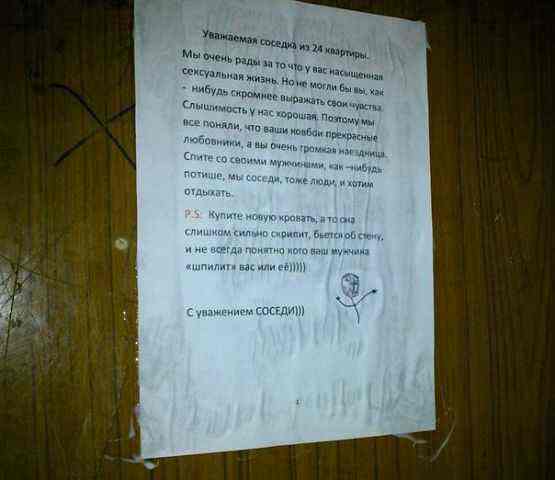 Уважаемая соседка из 24 квартиры.
Мы очень рады за то что у вас насыщенная
сексуальная жизнь. Но не могли бы вы, как
- нибудь скромнее выражать свои чувства.
Слышимость у нас хорошая. Поэтому мы
все поняли, что ваши ковбои прекрасные
любовники, а вы очень громкая наездница.
Спите со своими мужчинами, как –нибудь
потише, мы соседи, тоже люди, и хотим
отдыхать.
P.S: Купите новую кровать, а то она
слишком сильно скрипит, бьется об стену,
и не всегда понятно кого ваш мужчина
«шпилит» вас или её)))))
С уважением СОСЕДИ)))
1